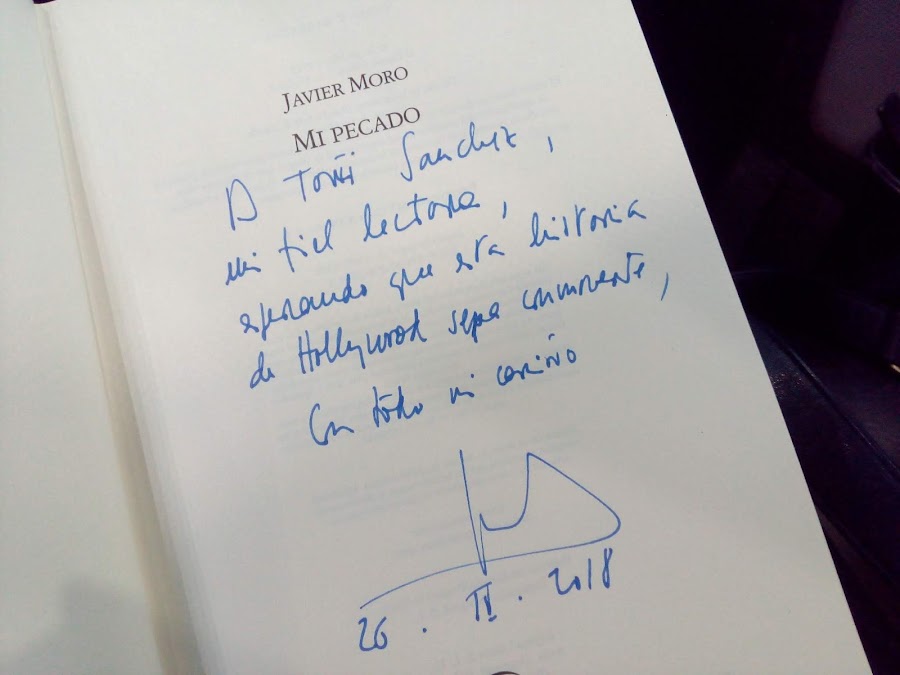 JAVIER MORO
MI PECADO
A Toñi Sanchez,
mi fiel lectora,
esperando que esta historia
de Hollywood sepa conmoverte,
Con todo mi cariño
26. IV. 2018